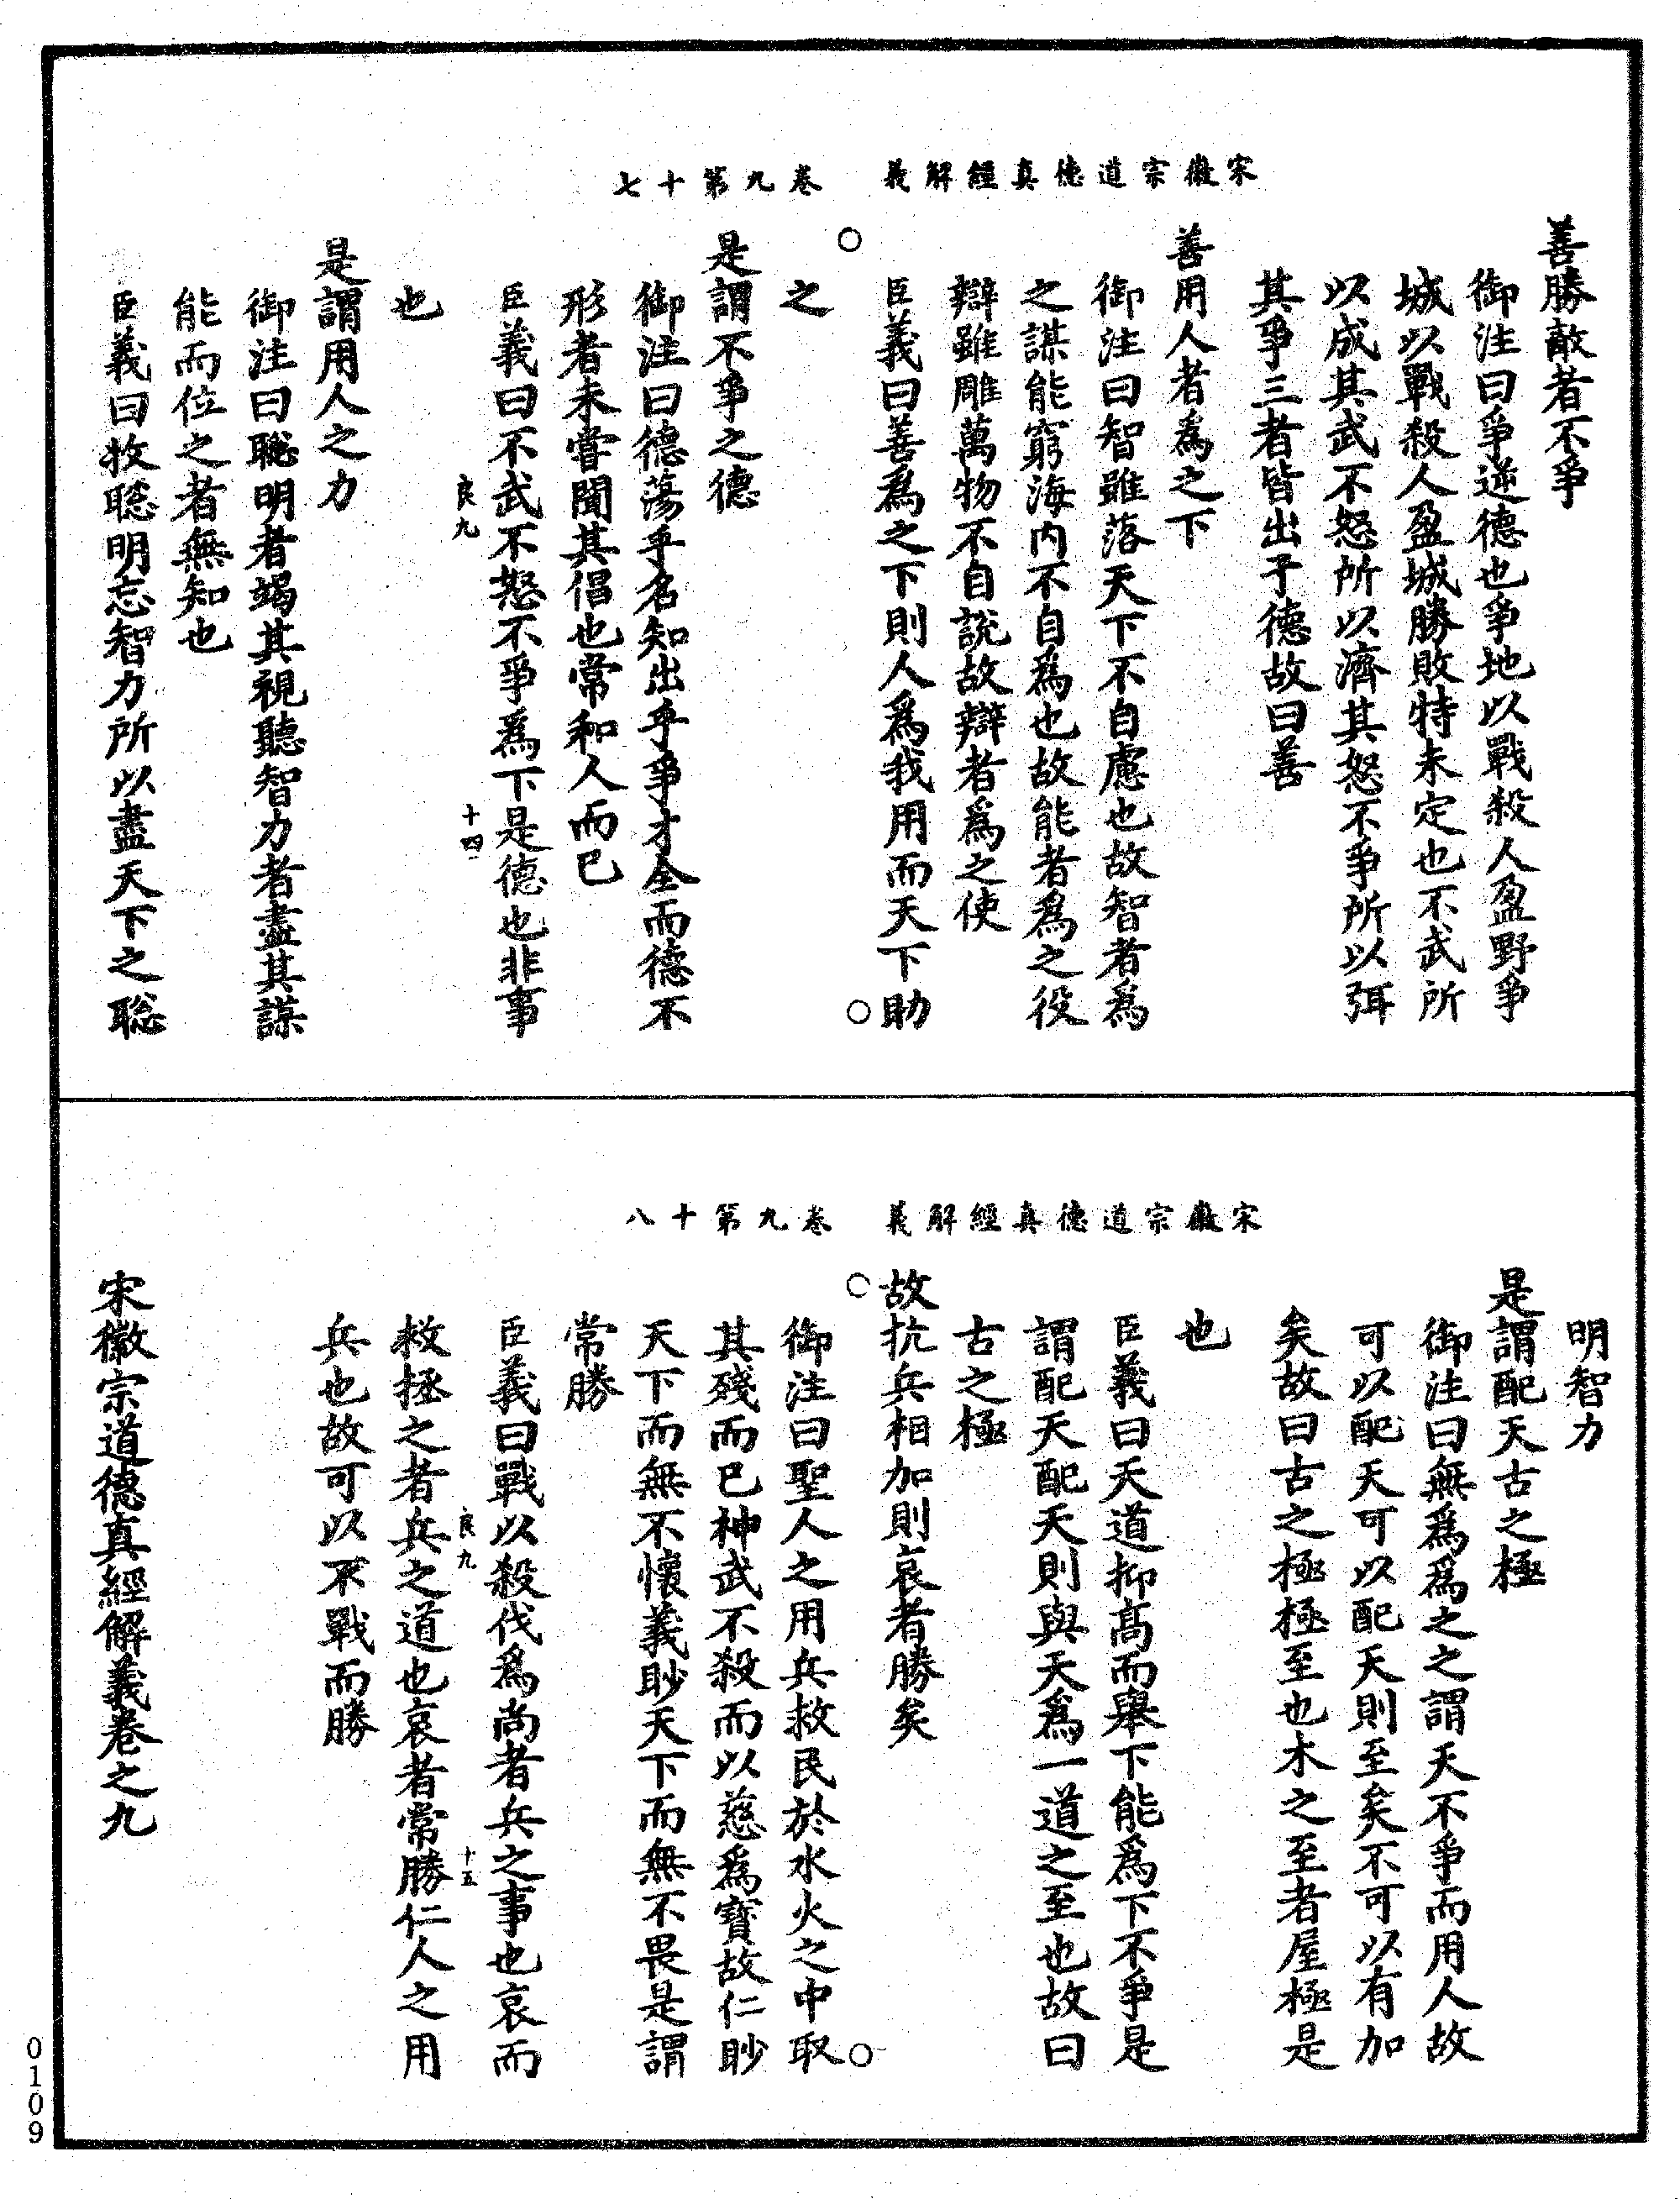 宋徽宗道德真經解義　卷九第十七
善勝敵者不爭
御注曰爭逆德也爭地以戰殺人盈野爭
城以戰殺人盈城勝敗特未定也不武所
以成其武不怒所以濟其怒不爭所以弭
其爭三者皆出于德故曰善
善用人者為之下
御注曰智雖落天下不自慮也故智者為
之謀能窮海內不自為也故能者為之役
辯雖雕萬物不自說故辯者為之使
臣義曰善為之下則人為我用而天下助
之
是謂不爭之德
御注曰德蕩乎名知出乎爭才全而德不
形者未嘗聞其倡也常和人而已
良九　十四
臣義曰不武不怒不爭為下是德也非事
也
是謂用人之力
御注曰聦明者竭其視聽智力者盡其謀
能而位之者無知也
臣義曰收聦明忘智力所以盡天下之聦
宋徽宗道德真經解義　卷九第十八
明智力
是謂配天古之極
御注曰無為為之之謂天不爭而用人故
可以配天可以配天則至矣不可以有加
矣故曰古之極極至也木之至者屋極是
也
臣義曰天道抑髙而舉下能為下不爭是
謂配天配天則與天為一道之至也故曰
古之極
故抗兵相加則哀者勝矣
御注曰聖人之用兵救民於水火之中取
其殘而已神武不殺而以慈為寶故仁眇
天下而無不懷義眇天下而無不畏是謂
常勝
臣義曰戰以殺伐為尚者兵之事也哀而
良九　十五
救拯之者兵之道也哀者常勝仁人之用
兵也故可以不戰而勝
宋徽宗道德真經解義卷之九
0109